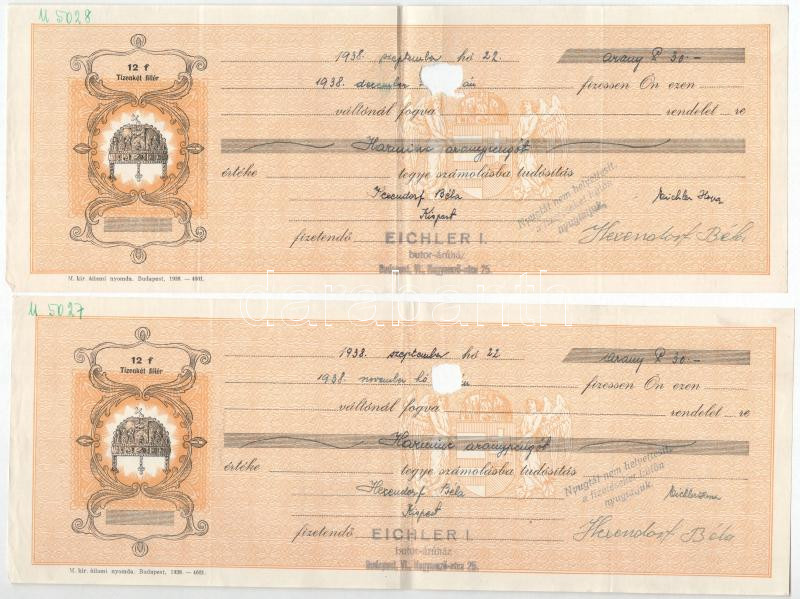 U 5028
12 f
Tizenkét fillér
1938. szeptember hó 22.
arany P 30.-
1938. december
án
fizessen Ön ezen
váltónál fogva
rendelet re
Harminc aranypengőt
értéke
tegye számolásba tudósítás
Béla
Kispest
Nyugtát nem helyettesít,
a fizetéseket külön
nyugtázzuk.
fizetendő
EICHLER I.
butor-áruház
Budapest, VI., Nagymező-utca 25.
Hexendorf Béla
M. kir. állami nyomda. Budapest, 1938. — 4601.
U 5027
12 f
Tizenkét fillér
1938. szeptember hó 22
arany P 30.-
1938. november hó
án
fizessen Ön ezen
váltónál fogva
rendelet re
Harminc aranypengőt
értéke
tegye számolásba tudósítás
Hexendorf Béla
Kispest
Nyugtát nem helyettesít,
a fizetéseket külön
nyugtázzuk.
fizetendő
EICHLER I.
butor-áruház
Budapest, VI., Nagymező-utca 25.
Hexendorf Béla
M. kir. állami nyomda. Budapest, 1938. — 4601.